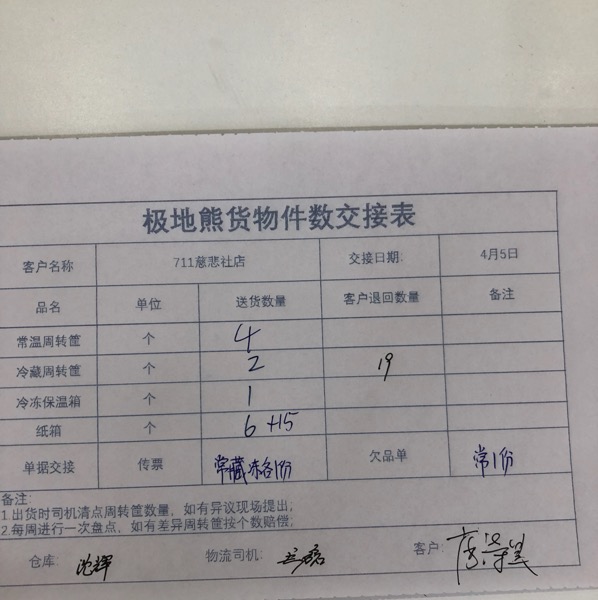 极地熊货物件数交接表
客户名称 711慈悲社店 交接日期: 4月5日
品名 单位 送货数量 客户退回数量 备注
常温周转筐 个 4
冷藏周转筐 个 2 19
冷冻保温箱 个 1
纸箱 个 6 +15
单据交接 传票 常藏冻各1份 欠品单 常1份
备注:
1.出货时司机清点周转筐数量，如有异议现场提出;
2.每周进行一次盘点，如有差异周转筐按个数赔偿;
仓库: 沈辉 物流司机: 客户: